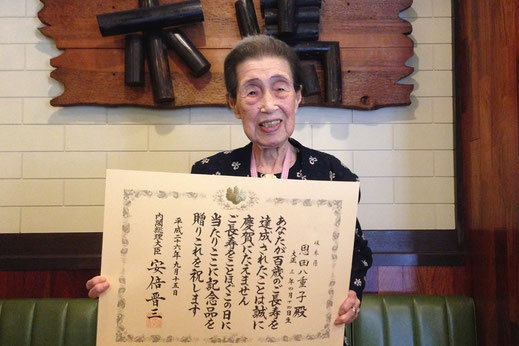 岐阜県
恩田八重子殿
大正三年四月十四日生
あなたが百歳のご長寿を
達成されたことは誠に
慶賀にたえません
ご長寿をことほぐこの日に
当たりここに記念品を
贈りこれを祝します
平成二十六年九月十五日
内閣総理大臣 安倍晋三